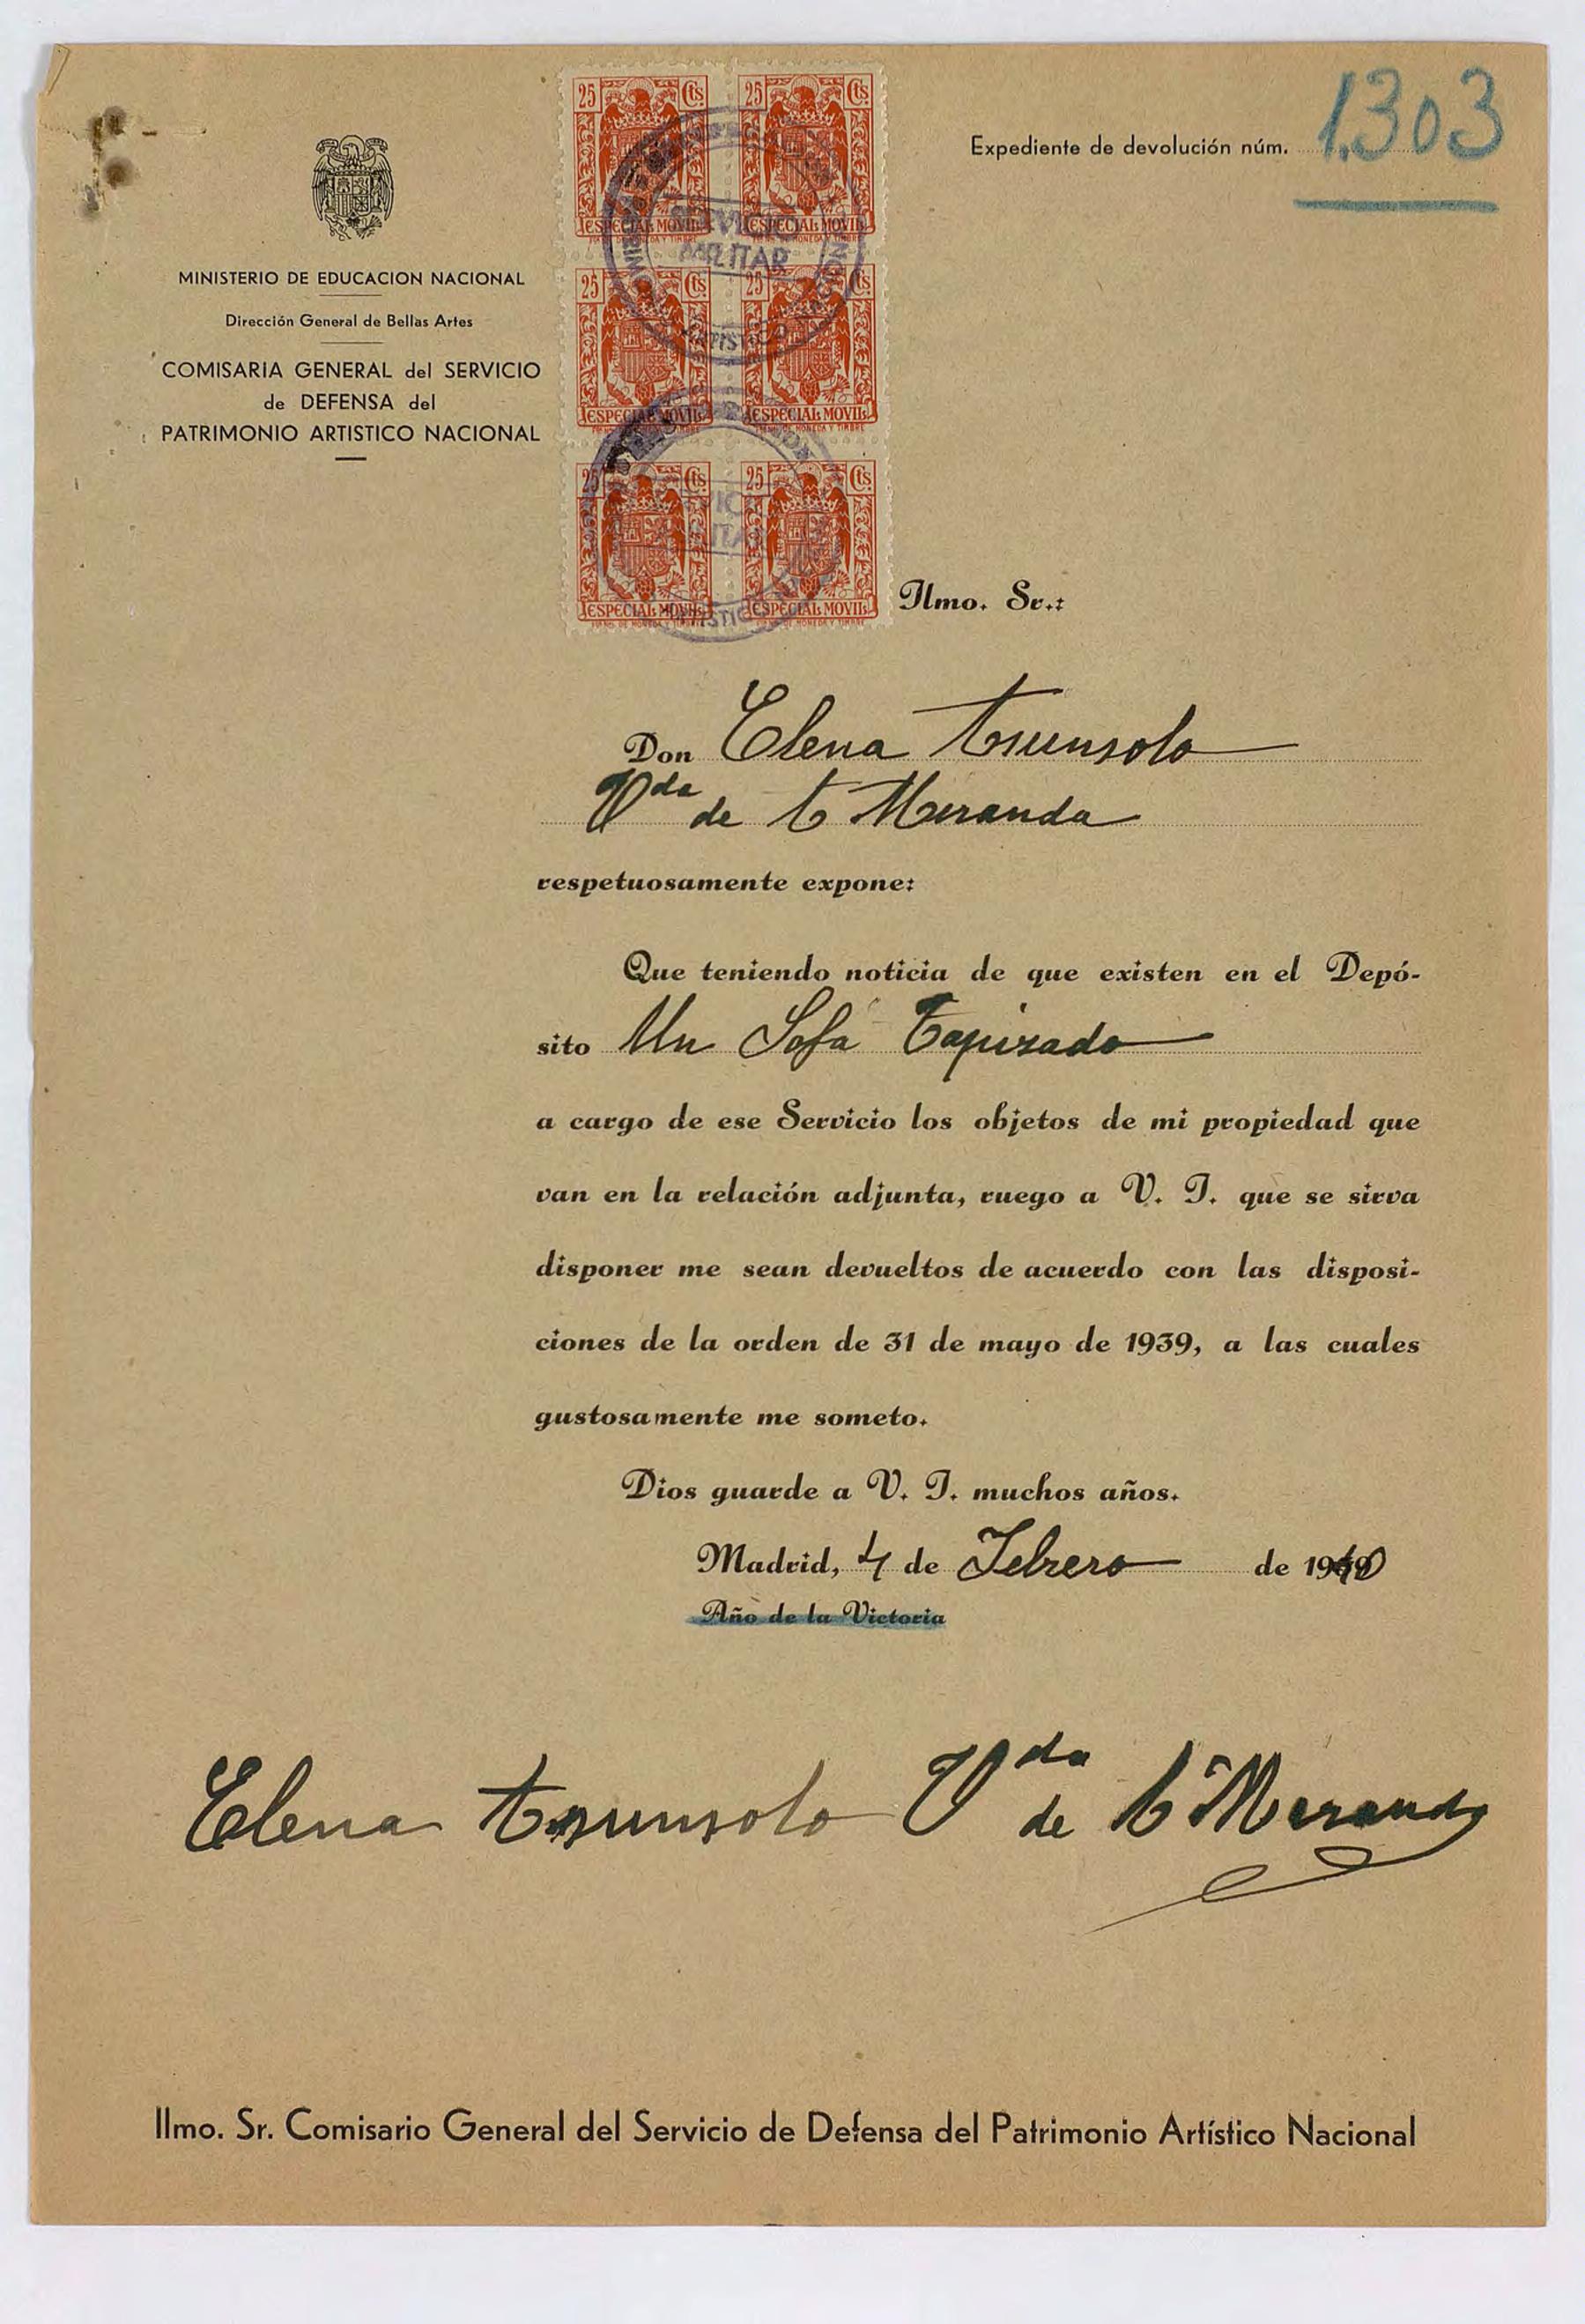 Expediente de devolución núm. 1.303
MINISTERIO DE EDUCACION NACIONAL
Dirección General de Bellas Artes
COMISARIA GENERAL del SERVICIO
de DEFENSA del
PATRIMONIO ARTISTICO NACIONAL
25 Cts. 25 Cts.
ESPECIAL MOVIL ESPECIAL MOVIL
SERVICIO
MILITAR
ARTISTICO
25 Cts. 25 Cts.
ESPECIAL MOVIL ESPECIAL MOVIL
25 Cts. 25 Cts.
ESPECIAL MOVIL ESPECIAL MOVIL
Ilmo. Sr.:
Don Elena Asunsolo
Vda de A Miranda
respetuosamente expone:
Que teniendo noticia de que existen en el Depó-
sito Un Sofá Tapizado
a cargo de ese Servicio los objetos de mi propiedad que
van en la relación adjunta, ruego a V. I. que se sirva
disponer me sean devueltos de acuerdo con las disposi-
ciones de la orden de 31 de mayo de 1939, a las cuales
gustosamente me someto.
Dios guarde a V. I. muchos años.
Madrid, 4 de Febrero de 1940
Año de la Victoria
Elena Asunsolo Vda de A Miranda
Ilmo. Sr. Comisario General del Servicio de Defensa del Patrimonio Artístico Nacional